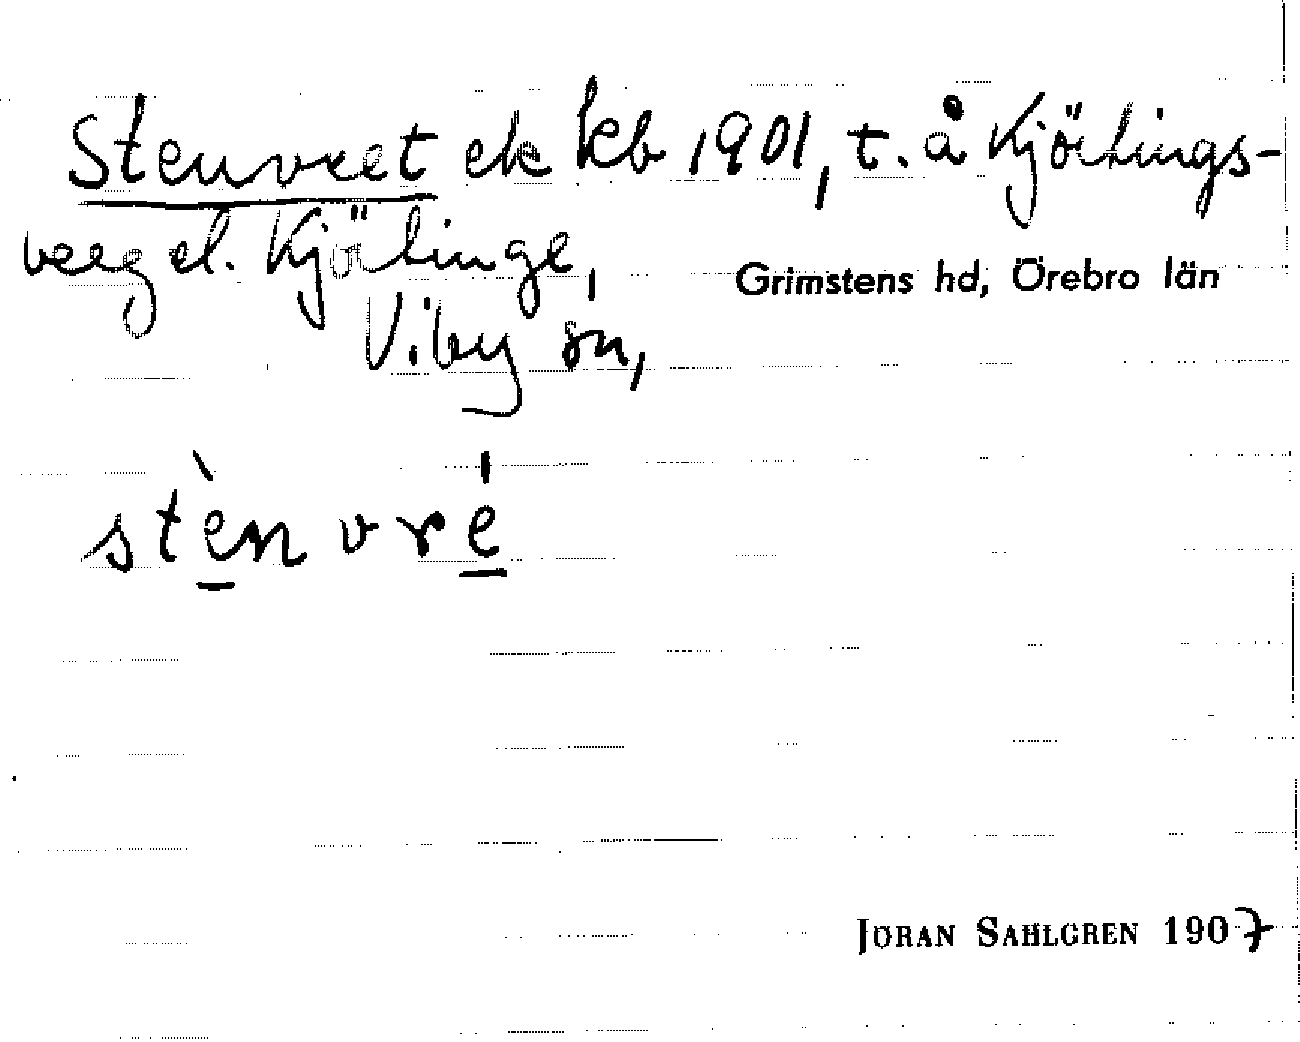 Stenvret ek kb 1901, t. å Kjörtings-
berg el. Kjörtinge,
Grimstens hd, Örebro län
Viby sn,
stè̱n vré̱
JÖRAN SAHLGREN 1907